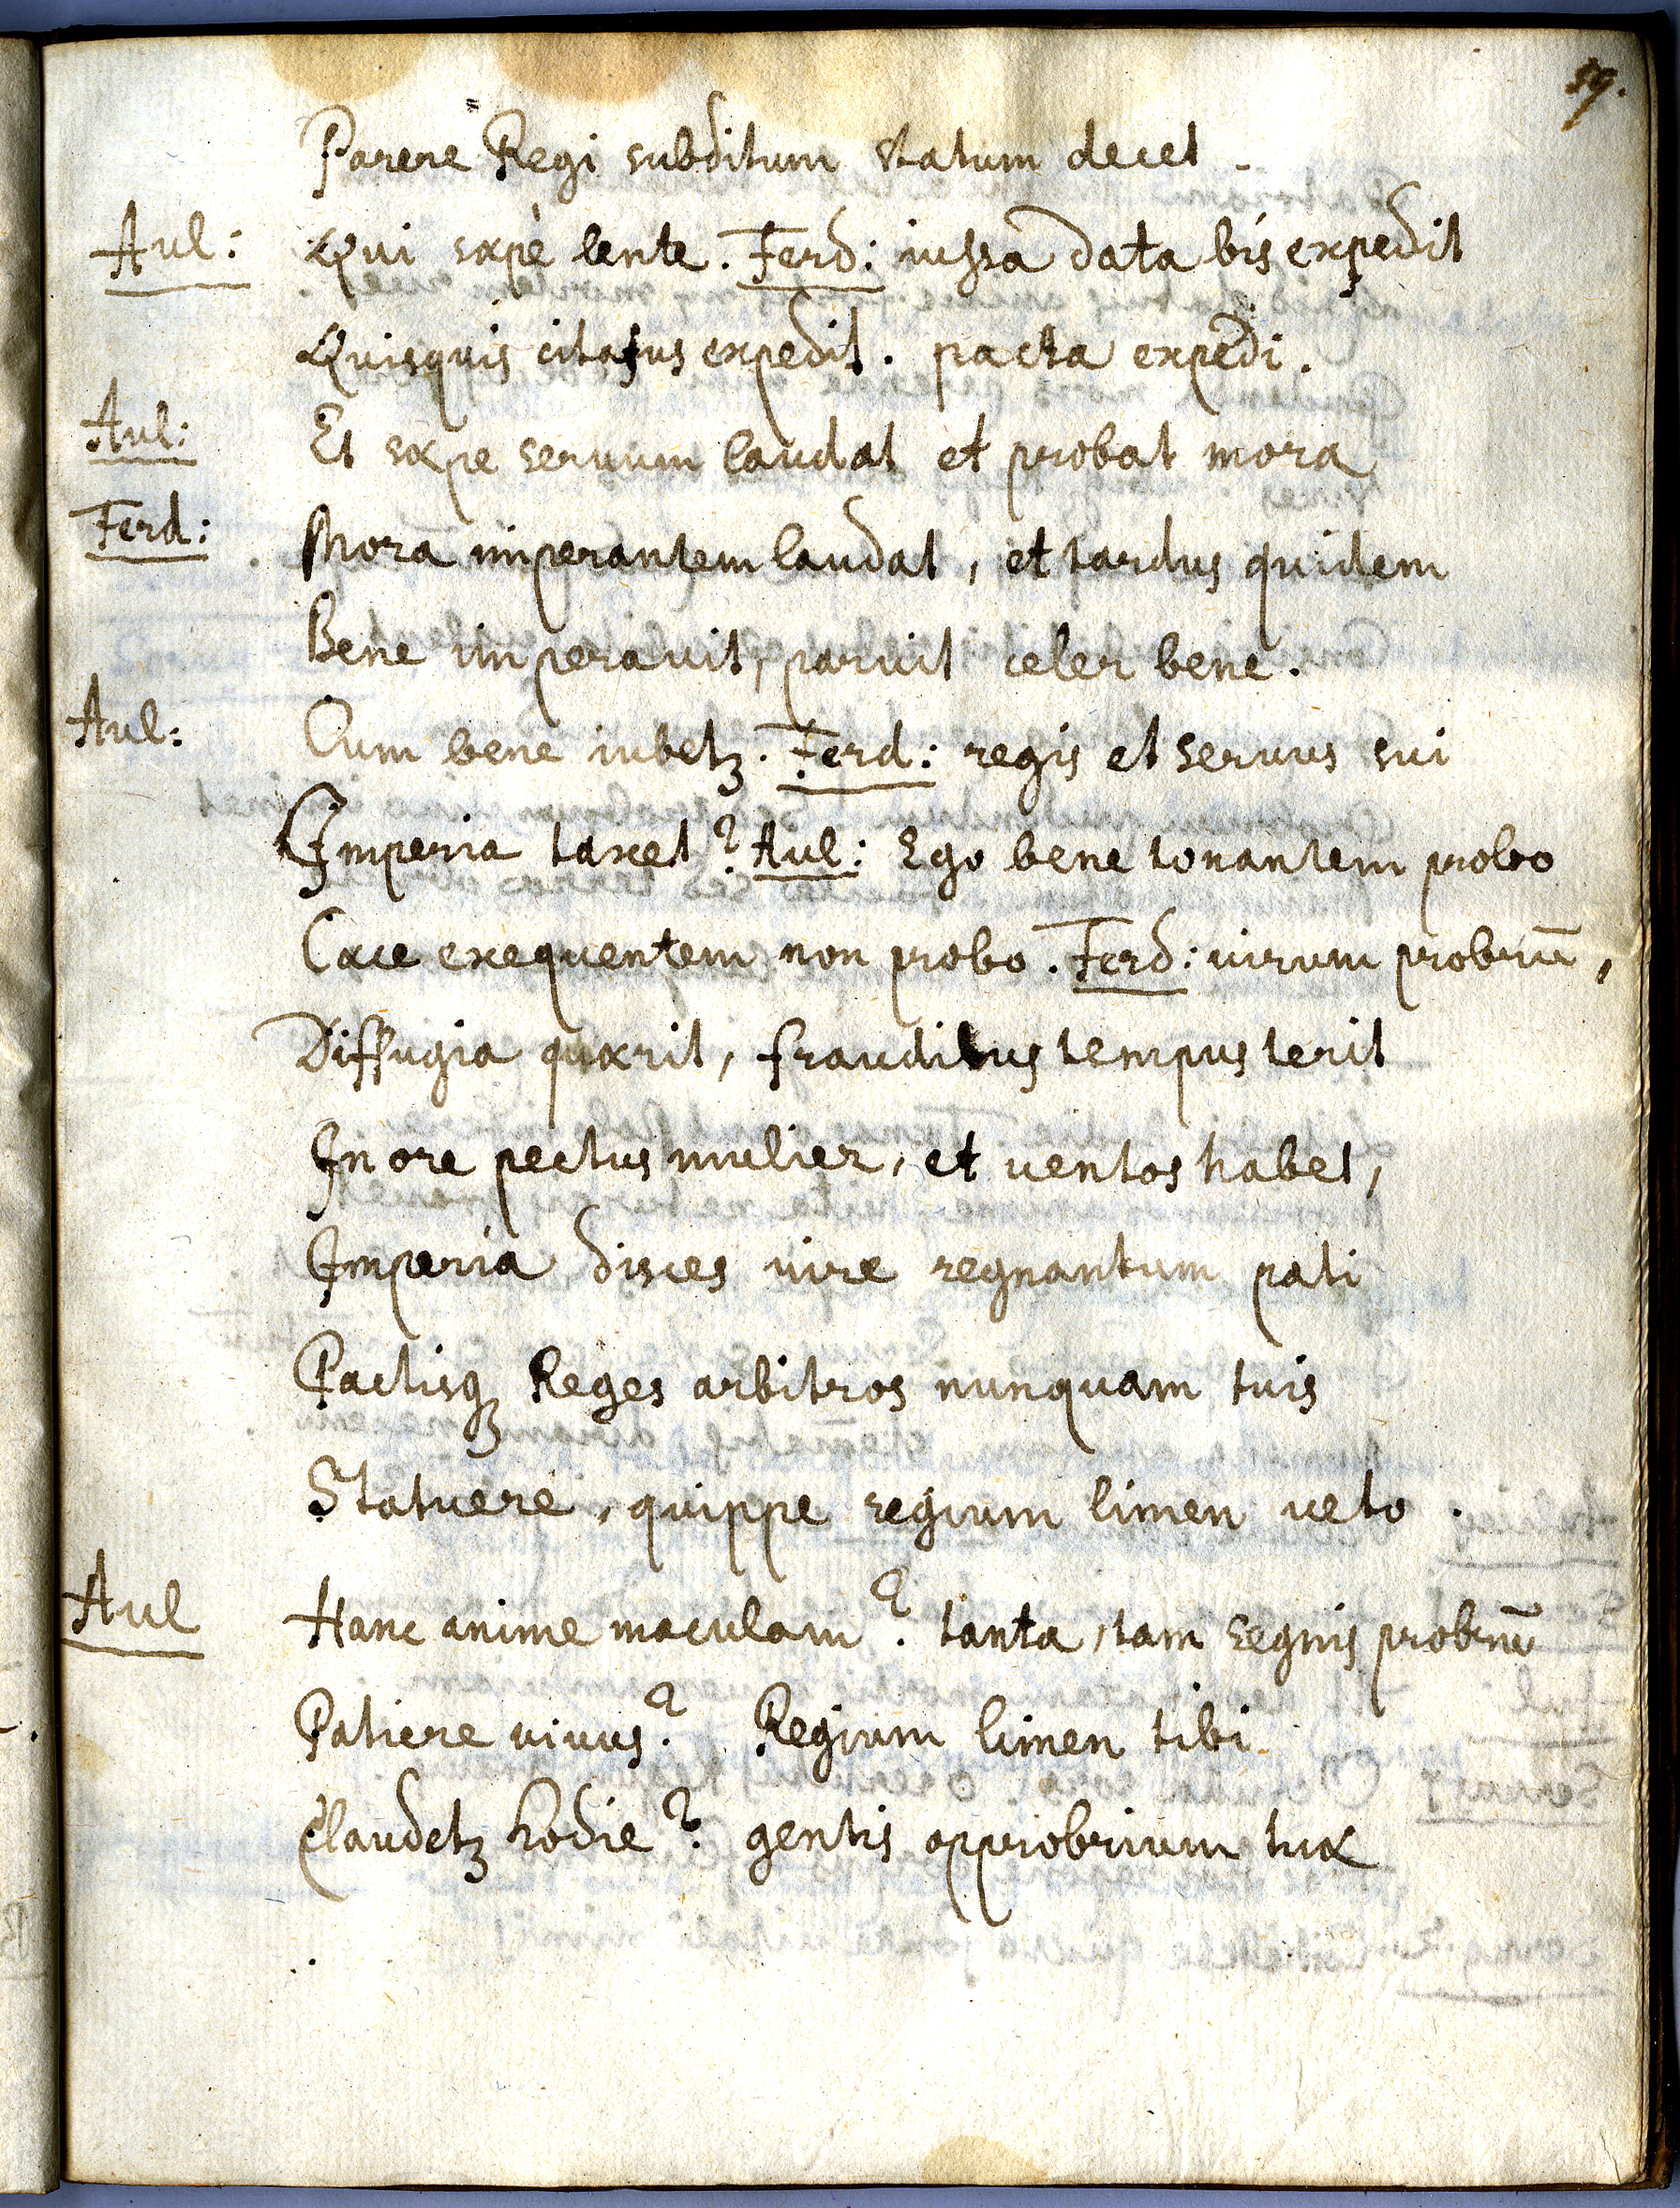 59.
Parere Regi subditum statum decet.
Aul: Qui sæpè lente. Ferd: iussa data bis expedit
Quisquis citatus expedit. pacta expedi.
Aul: Et sæpe seruum laudat et probat mora
Ferd: Mora imperantem laudat, et tardus quidem
Bene imperauit, paruit celer bene.
Aul: Cum bene iubetꝫ. Ferd: regis et seruus sui
Imperia taxet? Aul: Ego bene tonantem probo
Cæce exequentem non probo. Ferd: uirum probrū,
Diffugia quærit, fraudibus tempus terit
In ore pectus mulier, et uentos habet,
Imperia disces uire regnantum pati
Pactisqꝫ Reges arbitros nunquam tuis
Statuere, quippe regium limen ueto.
Aul Hanc anime maculam? tanta, tam segnis probrū
Patiere uiuus? Regium limen tibi
Claudetꝫ hodie? gentis opprobrium tuæ